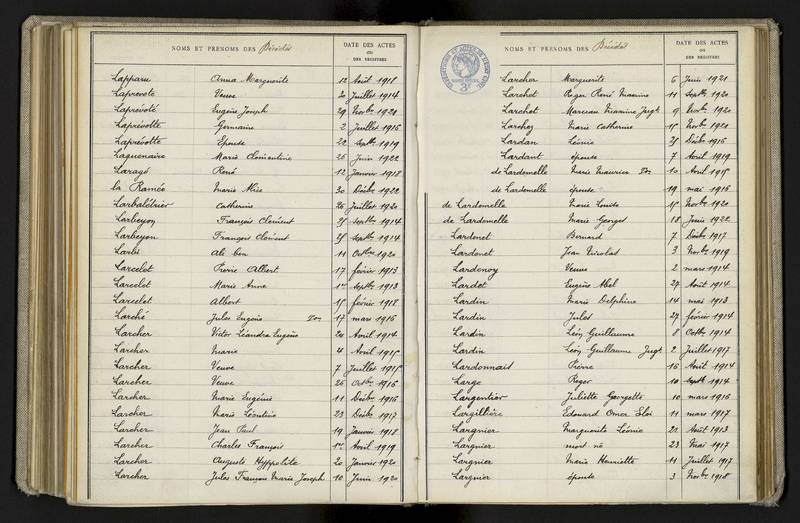 NOMS ET PRENOMS DES Décédés
DATE DES ACTES
OU
DES REGISTRES
Lapparu Anna Marguerite 12 Août 1918
Laprevote Veuve 20 Juillet 1914
Laprévoté Eugène Joseph 29 Novbre 1920
Laprévotte Germaine 2 Juillet 1916
Laprévotte Épouse 22 Septbre 1919
Laquenaire Marie Clémentine 26 Juin 1922
Laragé René 12 Janvier 1918
la Ramée Marie Mise 30 Décbre 1922
Larbalétrier Catherine 26 Juillet 1920
Larbeyon François Clément 25 Septbre 1914
Larbeyon François Clément 25 Septbre 1914
Larbi Ali ben 11 Octbre 1920
Larcelet Pierre Albert 17 février 1913
Larcelet Marie Anne 1er Septbre 1913
Larcelet Albert 15 février 1918
Larché Jules Eugène 17 mars 1916
Larcher Victor Léandre Eugène 24 Avril 1914
Larcher Marie 4 Avril 1915
Larcher Veuve 7 Juillet 1915
Larcher Veuve 26 Octbre 1916
Larcher Marie Eugénie 11 Décbre 1916
Larcher Marie Léontine 23 Décbre 1917
Larcher Jean Paul 19 Janvier 1918
Larcher Charles François 1er Avril 1919
Larcher Auguste Hyppolite 20 Janvier 1920
Larcher Jules François Marie Joseph 10 Juin 1920
NOMS ET PRENOMS DES Décédés
DATE DES ACTES
OU
DES REGISTRES
3F
Larcher Marguerite 6 Juin 1921
Larchet Roger René Maxime 11 Septbre 1920
Larchet Marceau Maxime Jugt 9 Novbre 1920
Larchez Marie Catherine 15 Novbre 1920
Lardan Léonie 25 Décbre 1916
Lardant épouse 7 Avril 1919
de Lardemelle Marie Maurice 10 Avril 1915
de Lardemelle épouse 19 mai 1916
de Lardemelle Marie Louise 15 Novbre 1920
de Lardemelle Marie Georges 18 Juin 1922
Lardenet Bernard 7 Décbre 1917
Lardenet Jean Nicolas 3 Novbre 1919
Lardenoy Veuve 2 mars 1914
Lardet Eugène Abel 27 Août 1914
Lardin Marie Delphine 14 mai 1913
Lardin Jules 27 février 1914
Lardin Léon Guillaume 8 Octbre 1914
Lardin Léon Guillaume Jugt 2 Juillet 1917
Lardonnait Pierre 16 Août 1914
Large Roger 10 Septbre 1914
Largentier Juliette Georgette 10 mars 1916
Largillière Edouard Omer Eloi 11 mars 1917
Largnier Marguerite Léonie 21 Août 1913
Largnier mort né 23 Mai 1917
Largnier Marie Henriette 11 Juillet 1917
Largnier épouse 3 Novbre 1918